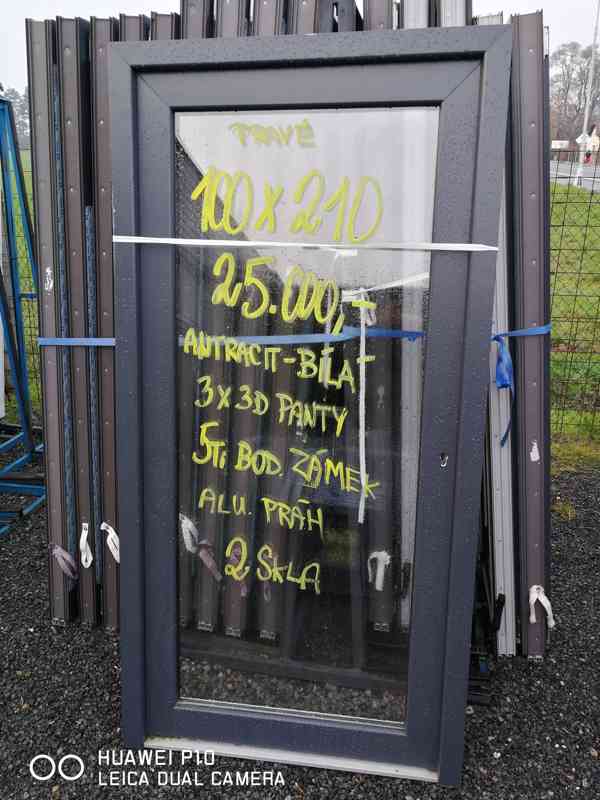 PRAVÉ
100 x 210
25.000,-
ANTRACIT-BÍLÁ
3 x 3D PANTY
5Ti BOD. ZÁMEK
ALU. PRÁH
2 SKLA
HUAWEI P10
LEICA DUAL CAMERA